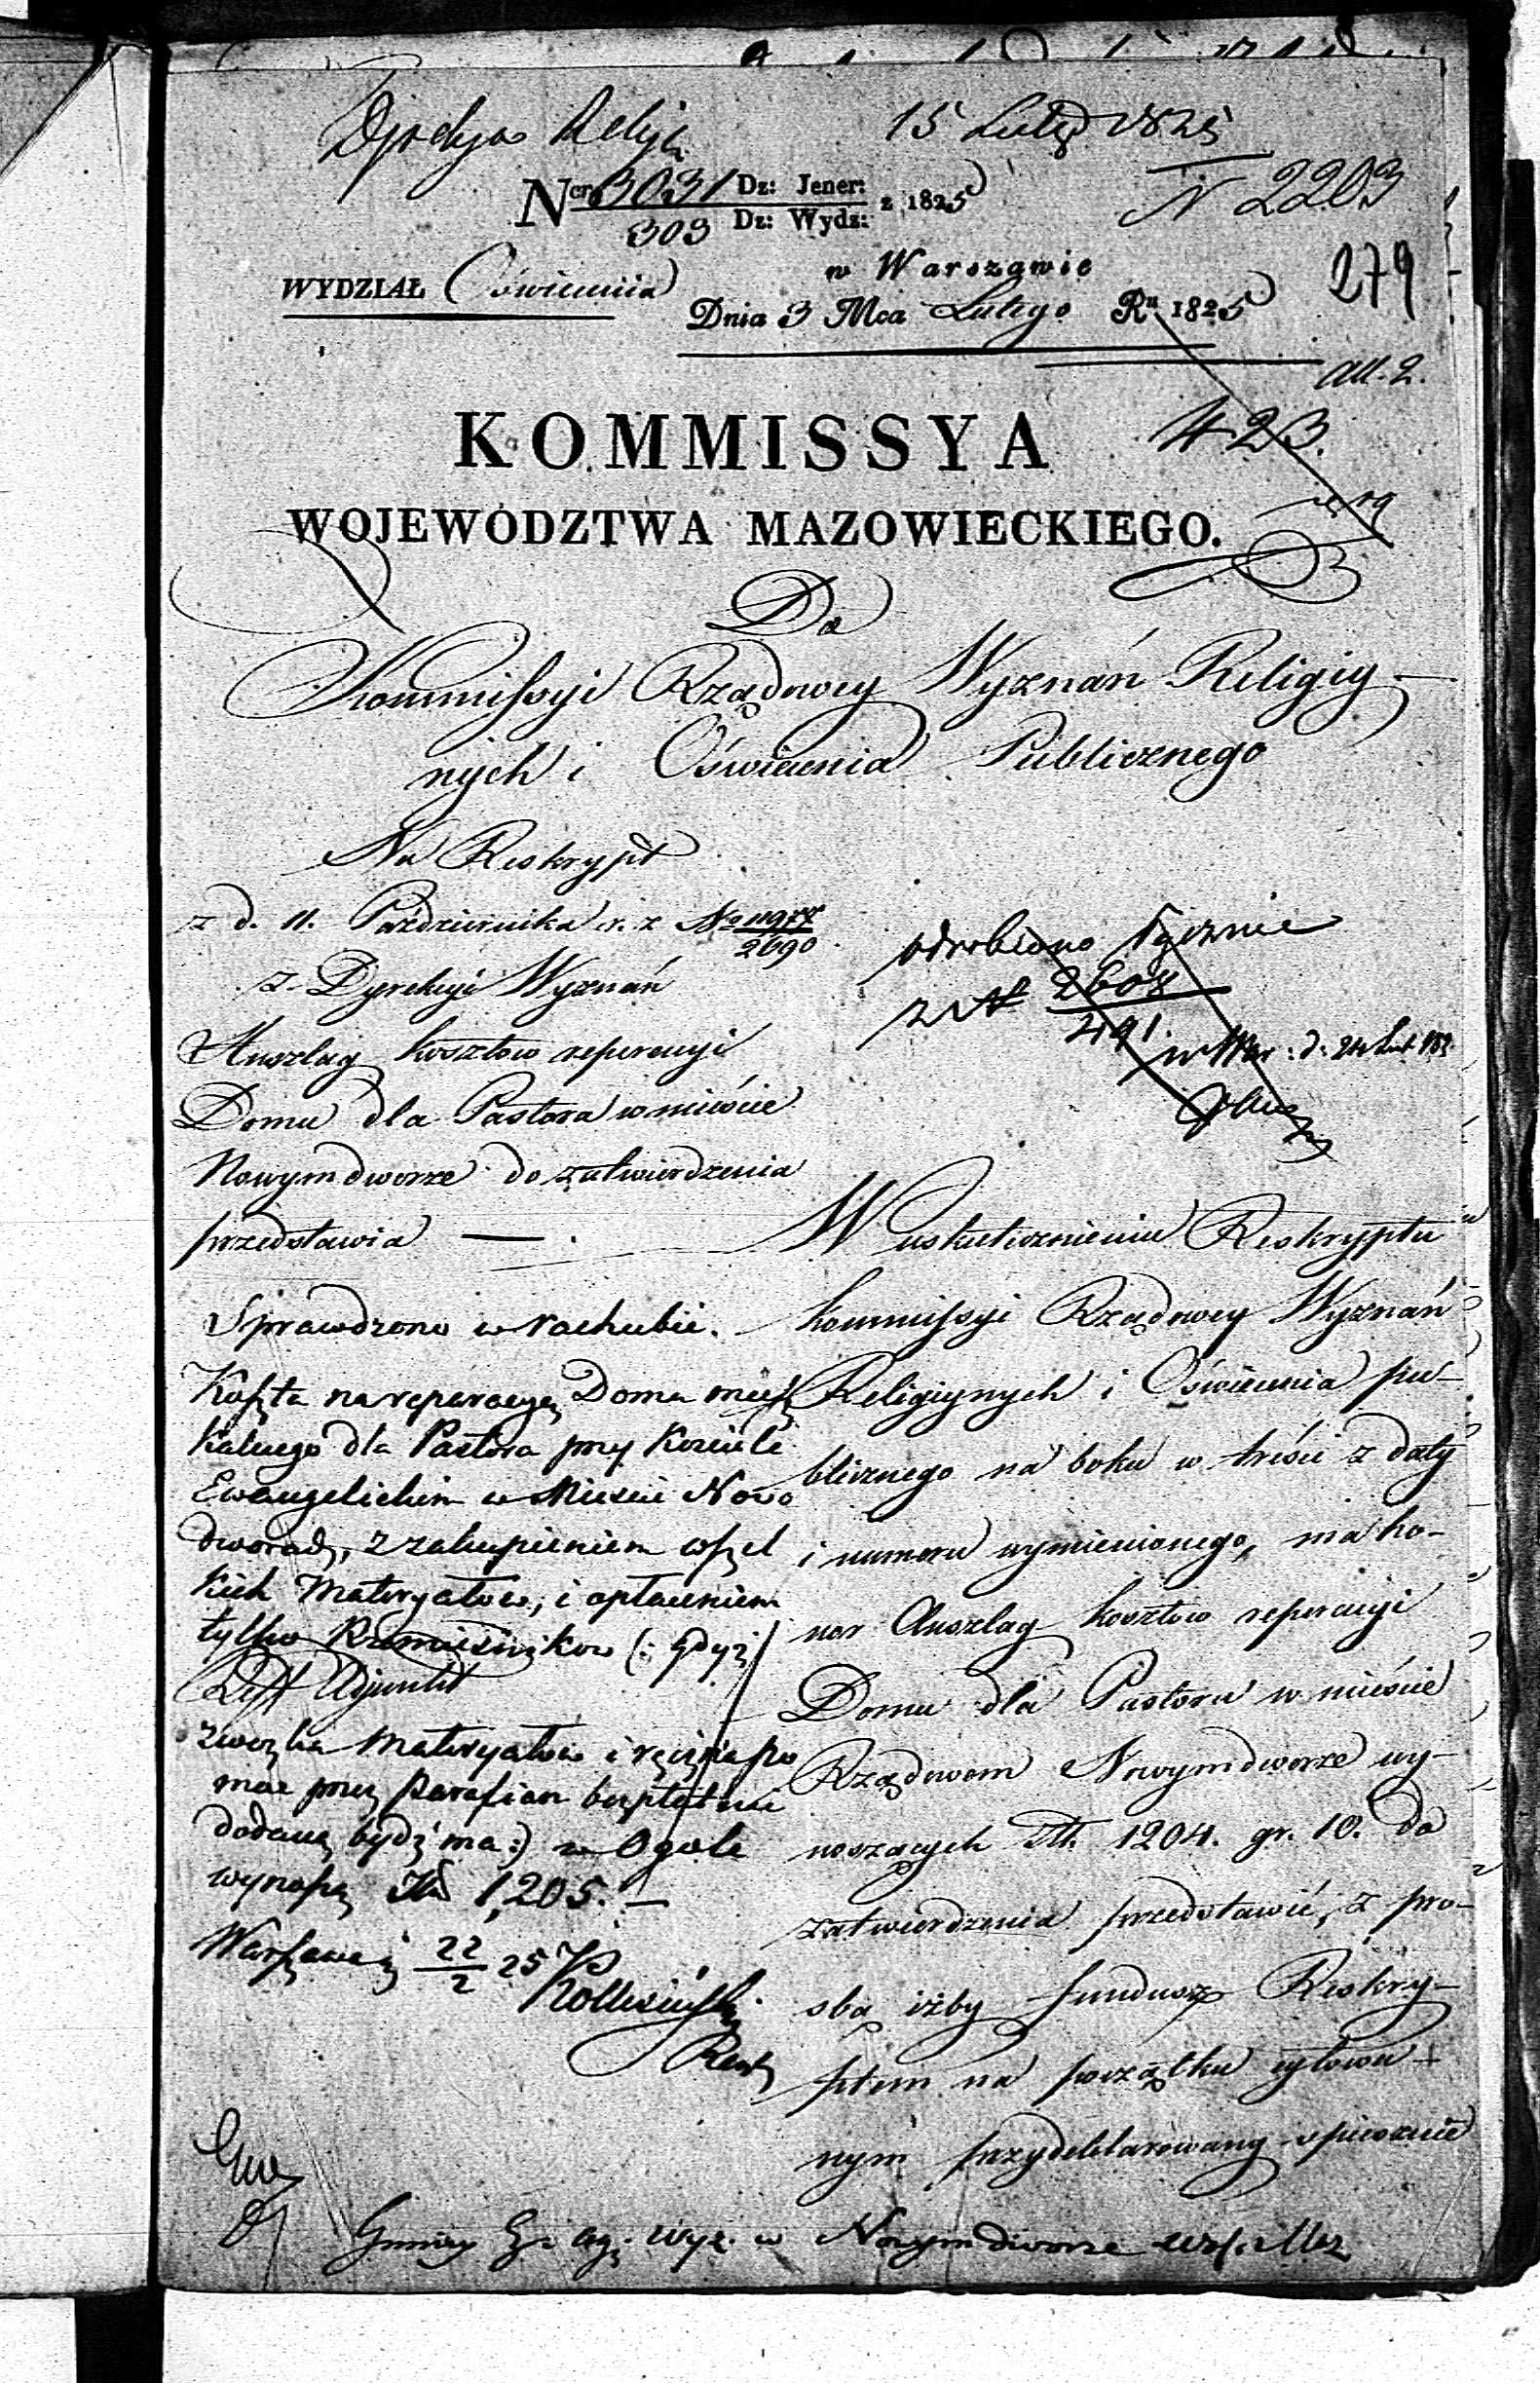 15 Luteg 1825
N 2203
Ncr 3031 Dz: Jener: z 1825
303 Dz: Wydz:
279
WYDZIAŁ Oświecenia
w Warszawie
Dnia 3 Mca Lutego Ru 1825
all. 2.
423.
KOMMISSYA
WOJEWÓDZTWA MAZOWIECKIEGO.
Do
Kommissyi Rządowey Wyznań Religiy-
nych i Oświecenia Publicznego
Na Reskrypt
z d. 11. Października r. z No 11977
2690
z Dyrekcyi Wyznań
Anszlag kosztow reperacyi
Domu dla Pastora w mieście
Nowymdworze do zatwierdzenia
przedstawia —.
odrobiono łącznie
z N 2608
491.
Sprawdzono w rachubie.
Koszta na reperacyą Domu miesz
kalnego dla Pastora przy Kościele
Ewangelickim w Mieście Nowo
dworach, z zakupieniem wszel
kich Materyałow, i opłaceniem
tylko Rzemieśnikow (: gdyż
zwozka Materyałow i ręczna po
moc przez Parafian bezpłatnie
dodaną bydź ma :) w Ogole
wynoszą Złt 1,205. —
Warszawa 22/2 25
W uskutecznieniu Reskryptu
Kommissyi Rządowey Wyznań
Religiynych i Oświecenia pu-
blicznego na boku w treści z daty
i numeru wymienionego, ma ho-
nor Anszlag kosztow reperacyi
Domu dla Pastora w mieście
Rządowem Nowymdworze wy-
noszących Złt. 1204. gr. 10. do
zatwierdzenia przedstawić, z pro-
sbą iżby fundusz Reskry-
ptem na początku cytowa-
nym przydeklarowany spiesznie
w Nowym Dworze